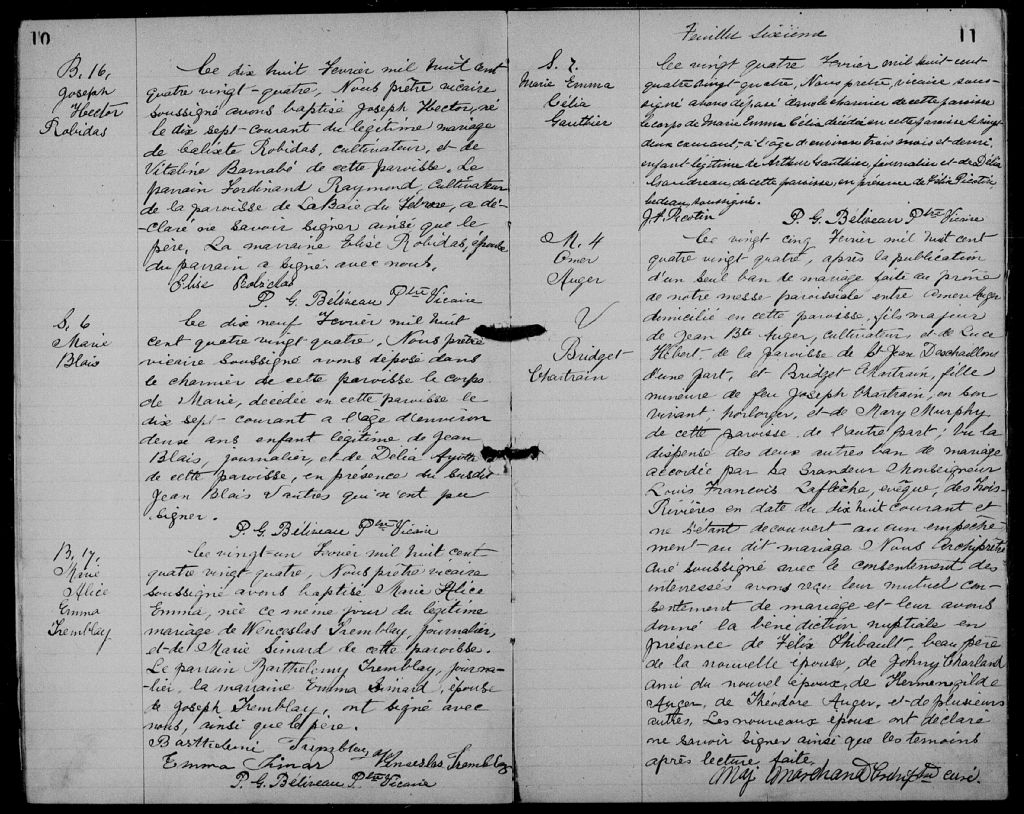 10
B. 16.
Joseph
Hector
Robidas
Ce dix huit Fevrier mil huit cent
quatre vingt-quatre, Nous prêtre vicaire
soussigné avons baptisé Joseph Hector, né
le dix sept courant du légitime mariage
de Calixte Robidas, cultivateur, et de
Vitaline Barnabé de cette paroisse. Le
parrain Ferdinand Raymond, cultivateur
de la paroisse de LaBaie du Febvre, a dé-
claré ne savoir signer ainsi que le
père. La marraine Elise Robidas, épouse
du parrain a signé avec nous.
Elise Robidas
P. G. Béliveau Ptre Vicaire
S. 6
Marie
Blais
Ce dix neuf Fevrier mil huit
cent quatre vingt quatre, Nous prêtre
vicaire soussigné avons déposé dans
le charnier de cette paroisse le corps
de Marie, décedée en cette paroisse le
dix sept courant a l'âge d'environ
deux ans enfant légitime de Jean
Blais, journalier, et de Delia Ayotte
de cette paroisse, en présence du susdit
Jean Blais & autres qui n'ont pu
signer.
P. G. Béliveau Ptre Vicaire
B. 17.
Marie
Alice
Emma
Tremblay
Ce vingt-un Fevrier mil huit cent
quatre vingt quatre, Nous prêtre vicaire
soussigné avons baptisé Marie Alice
Emma, née ce même jour du légitime
mariage de Wenceslas Tremblay, journalier,
et de Marie Simard de cette paroisse.
Le parrain Barthelemy Tremblay, journa-
lier, la marraine Emma Simard, épouse
de Joseph Tremblay, ont signé avec
nous, ainsi que le père.
Barthelemi Tremblay
Emma Simar Venseslas Tremblay
P. G. Béliveau Ptre Vicaire
Feuillet Sixième
11
S. 7.
Marie Emma
Célia
Gauthier
Ce vingt quatre Fevrier mil huit cent
quatre vingt-quatre, Nous prêtre, vicaire sous-
signé avons déposé dans le charnier de cette paroisse
le corps de Marie Emma Célia décédée en cette paroisse le vingt
deux courant à l'âge d'environ trois mois et demi,
enfant légitime de Arthur Gauthier, journalier et de Délia
Gaudreau, de cette paroisse, en présence de Félix Picotin
bedeau, soussigné.
P. G. Béliveau Ptre Vicaire
M. 4
Omer
Auger
&
Bridget
Chartrain
Ce vingt cinq Fevrier mil huit cent
quatre vingt quatre, après la publication
d'un seul ban de mariage faite au prône
de notre messe paroissiale entre Omer Auger
domicilié en cette paroisse, fils majeur
de Jean Bte Auger, cultivateur, et de Luce
Hébert de la paroisse de St Jean Deschaillons
d'une part, et Bridget Chartrain, fille
mineure de feu Joseph Chartrain, en son
vivant, horloger, et de Mary Murphy
de cette paroisse de l'autre part; Vu la
dispense des deux autres ban de mariage
accordée par Sa Grandeur Monseigneur
Louis François Laflèche, evêque, des Trois-
Rivières en date du dix huit courant et
ne s'étant découvert aucun empêche-
ment au dit mariage, Nous Archiprêtre
Curé soussigné avec le consentement des
interessés avons reçu leur mutuel con-
sentement de mariage et leur avons
donné la bénédiction nuptiale en
présence de Félix Thibault, beau père
de la nouvelle épouse, de Johny Charland
ami du nouvel époux, de Hermenegilde
Auger, de Théodore Auger, et de plusieurs
autres. Les nouveaux époux ont déclaré
ne savoir signer ainsi que les temoins
après lecture faite.
Marchand Archip. Ptre curé.